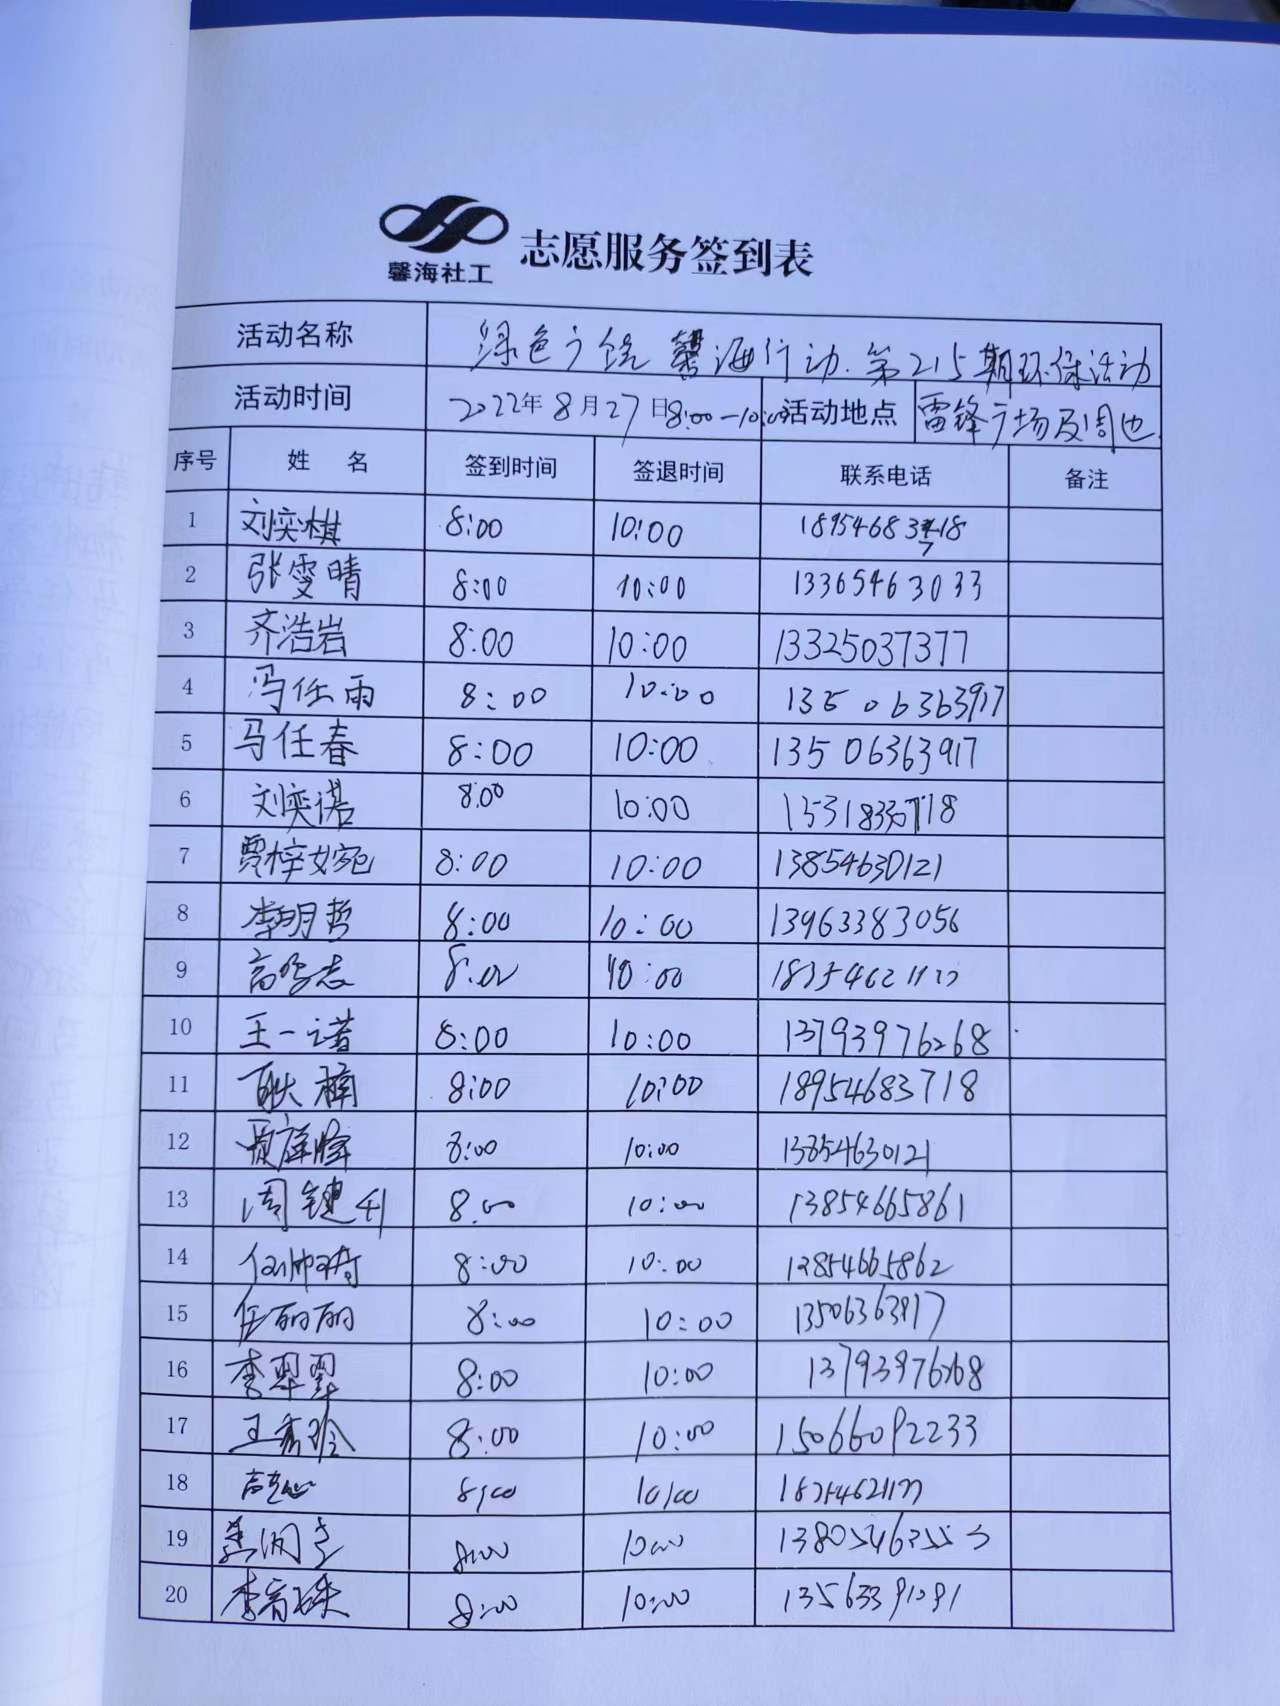 馨海社工 志愿服务签到表
活动名称 绿色广饶 馨海行动.第215期环保活动
活动时间 2022年8月27日8:00-10:00 活动地点 雷锋广场及周边
序号 姓 名 签到时间 签退时间 联系电话 备注
1 刘奕棋 8:00 10:00 18954683718
2 张雯晴 8:00 10:00 13365463033
3 齐浩岩 8:00 10:00 13325037377
4 冯任雨 8:00 10:00 13506363917
5 马任春 8:00 10:00 13506363917
6 刘奕诺 8:00 10:00 15318330718
7 贾梓婉 8:00 10:00 13854630121
8 李明哲 8:00 10:00 13963383056
9 8:00 10:00
10 王一诺 8:00 10:00 13793976268
11 耿楠 8:00 10:00 18954683718
12 8:00 10:00 13854630121
13 周键利 8:00 10:00 13854665861
14 8:00 10:00 13854665862
15 任丽丽 8:00 10:00 13506363917
16 李翠翠 8:00 10:00 13793976268
17 王秀玲 8:00 10:00 15066092233
18 8:00 10:00
19 8:00 10:00
20 8:00 10:00 13563391091